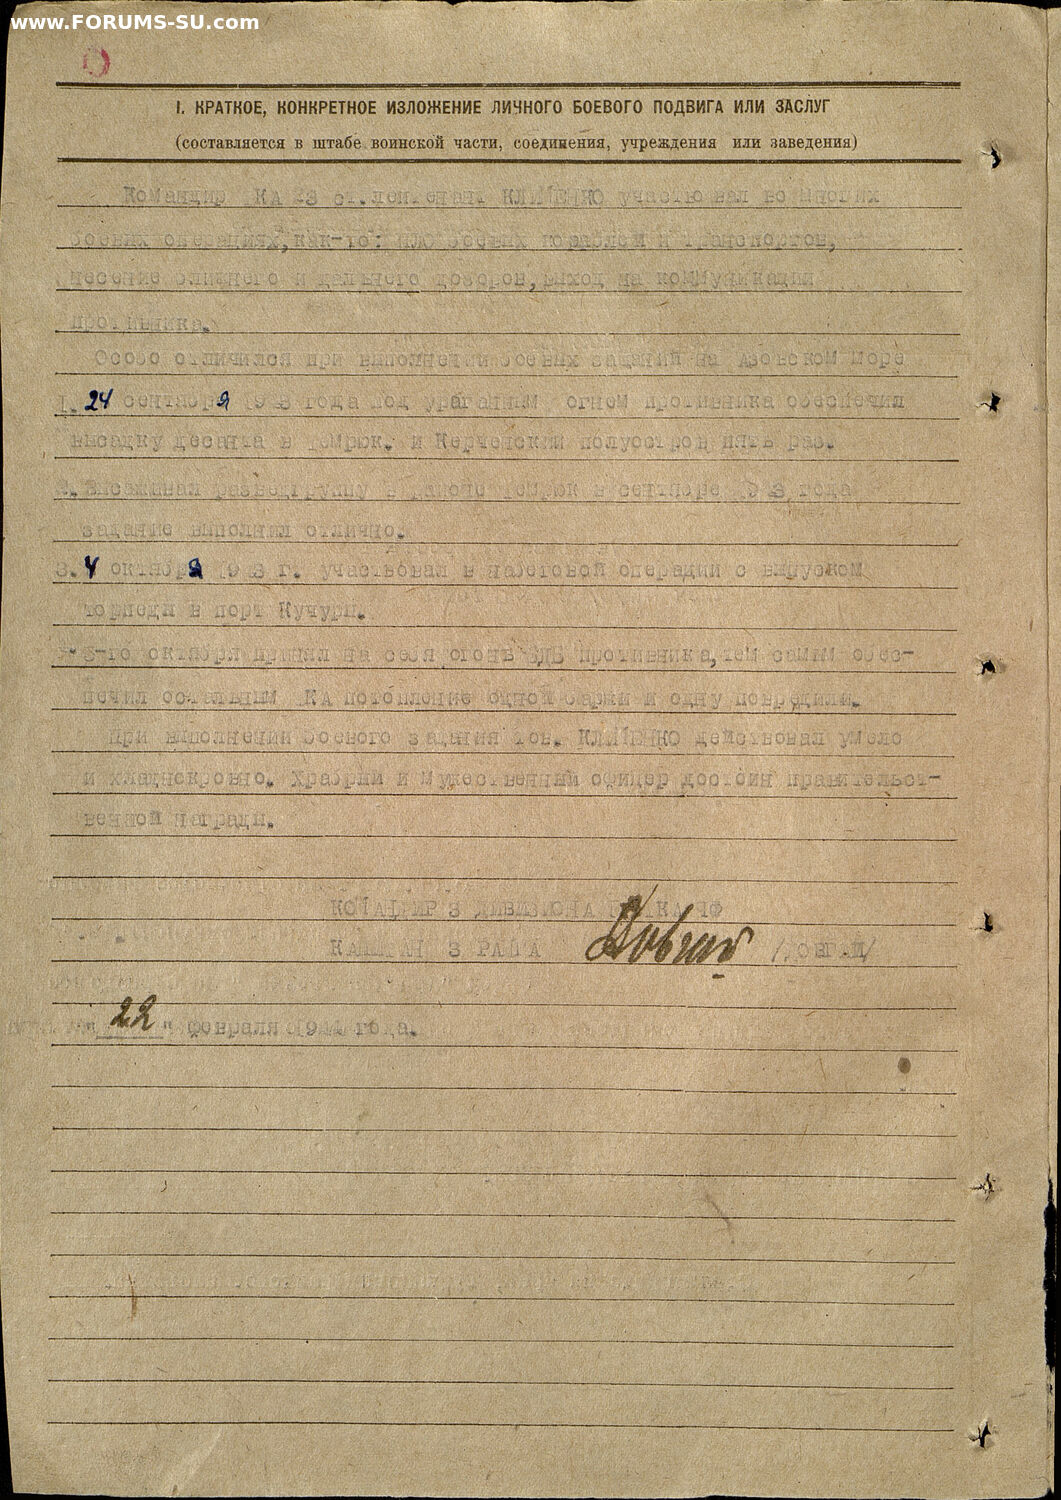 www.FORUMS-SU.com
I. КРАТКОЕ, КОНКРЕТНОЕ ИЗЛОЖЕНИЕ ЛИЧНОГО БОЕВОГО ПОДВИГА ИЛИ ЗАСЛУГ
(составляется в штабе воинской части, соединения, учреждения или заведения)
Командир КА ст.лейтенант КЛИМЕНКО участвовал во многих
боевых операциях, как-то: ПЛО боевых кораблей и транспортов,
несение ближнего и дальнего дозоров, выход на коммуникации
противника.
Особо отличился при выполнении боевых заданий на Азовском море
1. 24 сентября года под ураганным огнем противника обеспечил
высадку десанта в Темрюк. и Керченский полуостров пять раз.
2. Высаживал разведгруппу в районе Темрюк в сентябре года
задание выполнил отлично.
3. 4 октября г. участвовал в набеговой операции с выпуском
торпеды в порт Кучуры.
октября принял на себя огонь БДБ противника, тем самым обес-
печил остальным КА потопление одной баржи и одну повредили.
При выполнении боевого задания тов. КЛИМЕНКО действовал умело
и хладнокровно. Храбрый и мужественный офицер достоин правительст-
венной награды.
КОМАНДИР 3 ДИВИЗИОНА ЧФ
КАПИТАН 3 РАНГА /ДОВГАЙ/
" 22 " февраля года.